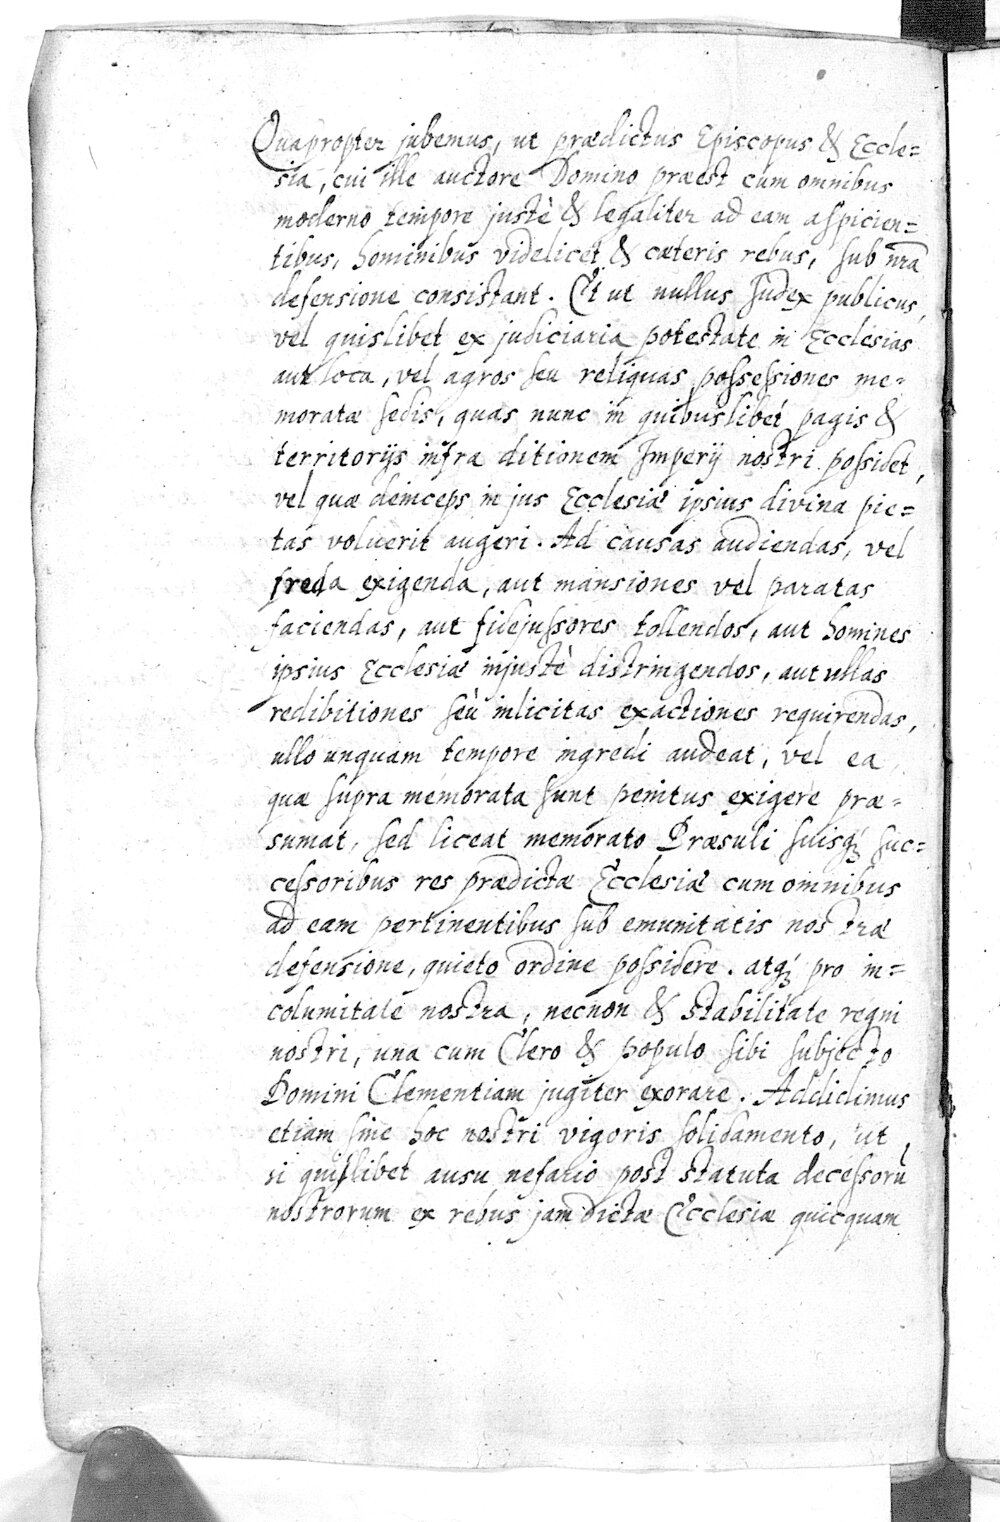 Quapropter jubemus, ut prædictus Episcopus & Eccle=
sia, cui ille auctore Domino præest cum omnibus
moderno tempore justè & legaliter ad eam aspicien=
tibus, hominibus videlicet & cæteris rebus, sub nrã
defensione consistant. Et ut nullus Judex publicus,
vel quislibet ex judiciaria potestate in Ecclesias
aut loca, vel agros seu reliquas possessiones me=
moratæ sedis, quas nunc in quibuslibet pagis &
territorijs infra ditionem Imperij nostri possidet,
vel quæ deinceps in jus Ecclesiæ ipsius divina pie=
tas voluerit augeri. Ad causas audiendas, vel
freda exigenda, aut mansiones vel paratas
faciendas, aut fidejussores tollendos, aut homines
ipsius Ecclesiæ injustè distringendos, aut ullas
redibitiones seù inlicitas exactiones requirendas,
ullo unquam tempore ingredi audeat, vel ea
quæ supra memorata sunt penitus exigere præ=
sumat, sed liceat memorato Præsuli suisq; suc=
cessoribus res prædictæ Ecclesiæ cum omnibus
ad eam pertinentibus sub emunitatis nostræ
defensione, quieto ordine possidere. atq; pro in=
columitate nostra, necnon & stabilitate regni
nostri, una cum Clero & populo sibi subjecto
Domini Clementiam jugiter exorare. Addidimus
etiam sine hoc nostri vigoris solidamento, ut,
si quislibet ausu nefario post statuta decessorũ
nostrorum ex rebus jam dictæ Ecclesiæ quicquam